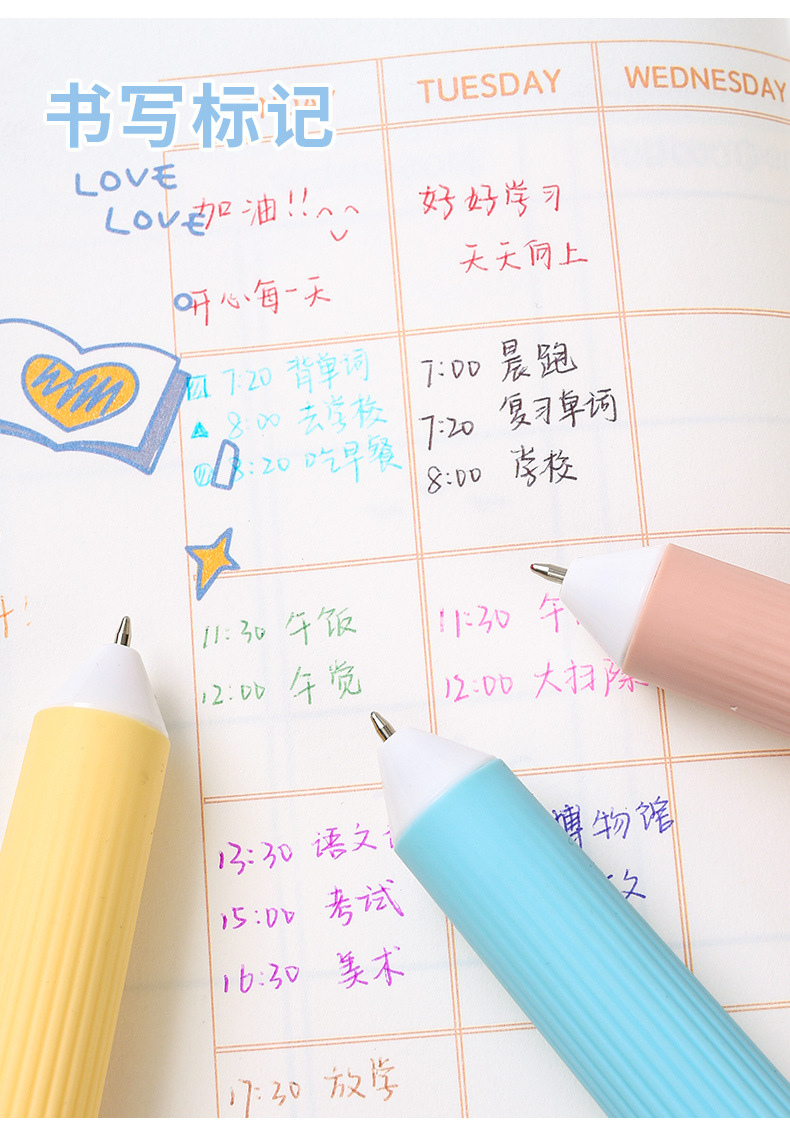 书写标记
TUESDAY
WEDNESDAY
LOVE
LOVE
加油!!
开心每一天
好好学习
天天向上
7:20 背单词
8:00 去学校
8:20 吃早餐
7:00 晨跑
7:20 复习单词
8:00 学校
11:30 午饭
12:00 午觉
11:30 午
12:00 大扫除
13:30 语文
15:00 考试
16:30 美术
博物馆
17:30 放学